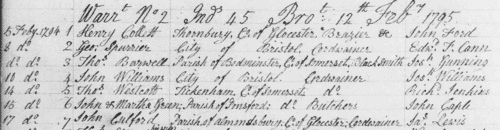 Warrt. No 2 Ind. 45 Bro.t 12th Feby. 1795
5 Feby. 1794 1 Henry Collett Thornbury, Co. of Glocester Brazier &c John Ford
8 do. 2 Geo. Spurrier City of Bristol. Cordwainer Edwd. T. Cann
do. do. 3 Thos. Barwell Parish of Bedminster, C. of Somerset, Black Smith Jos. Gunning
10 do. 4 John Williams City of Bristol. Cordwainer Jos. Williams
14 do. 5 Thos. Westcott Tickenham, C. of Somerset do. Richd. Jenkins
16 do. 6 John & Martha Green, Parish of do. Butchers John Caple
17 do. 7 John Parish of Almondsbury, C. of Glocester, Cordwainer Jas. Lewis